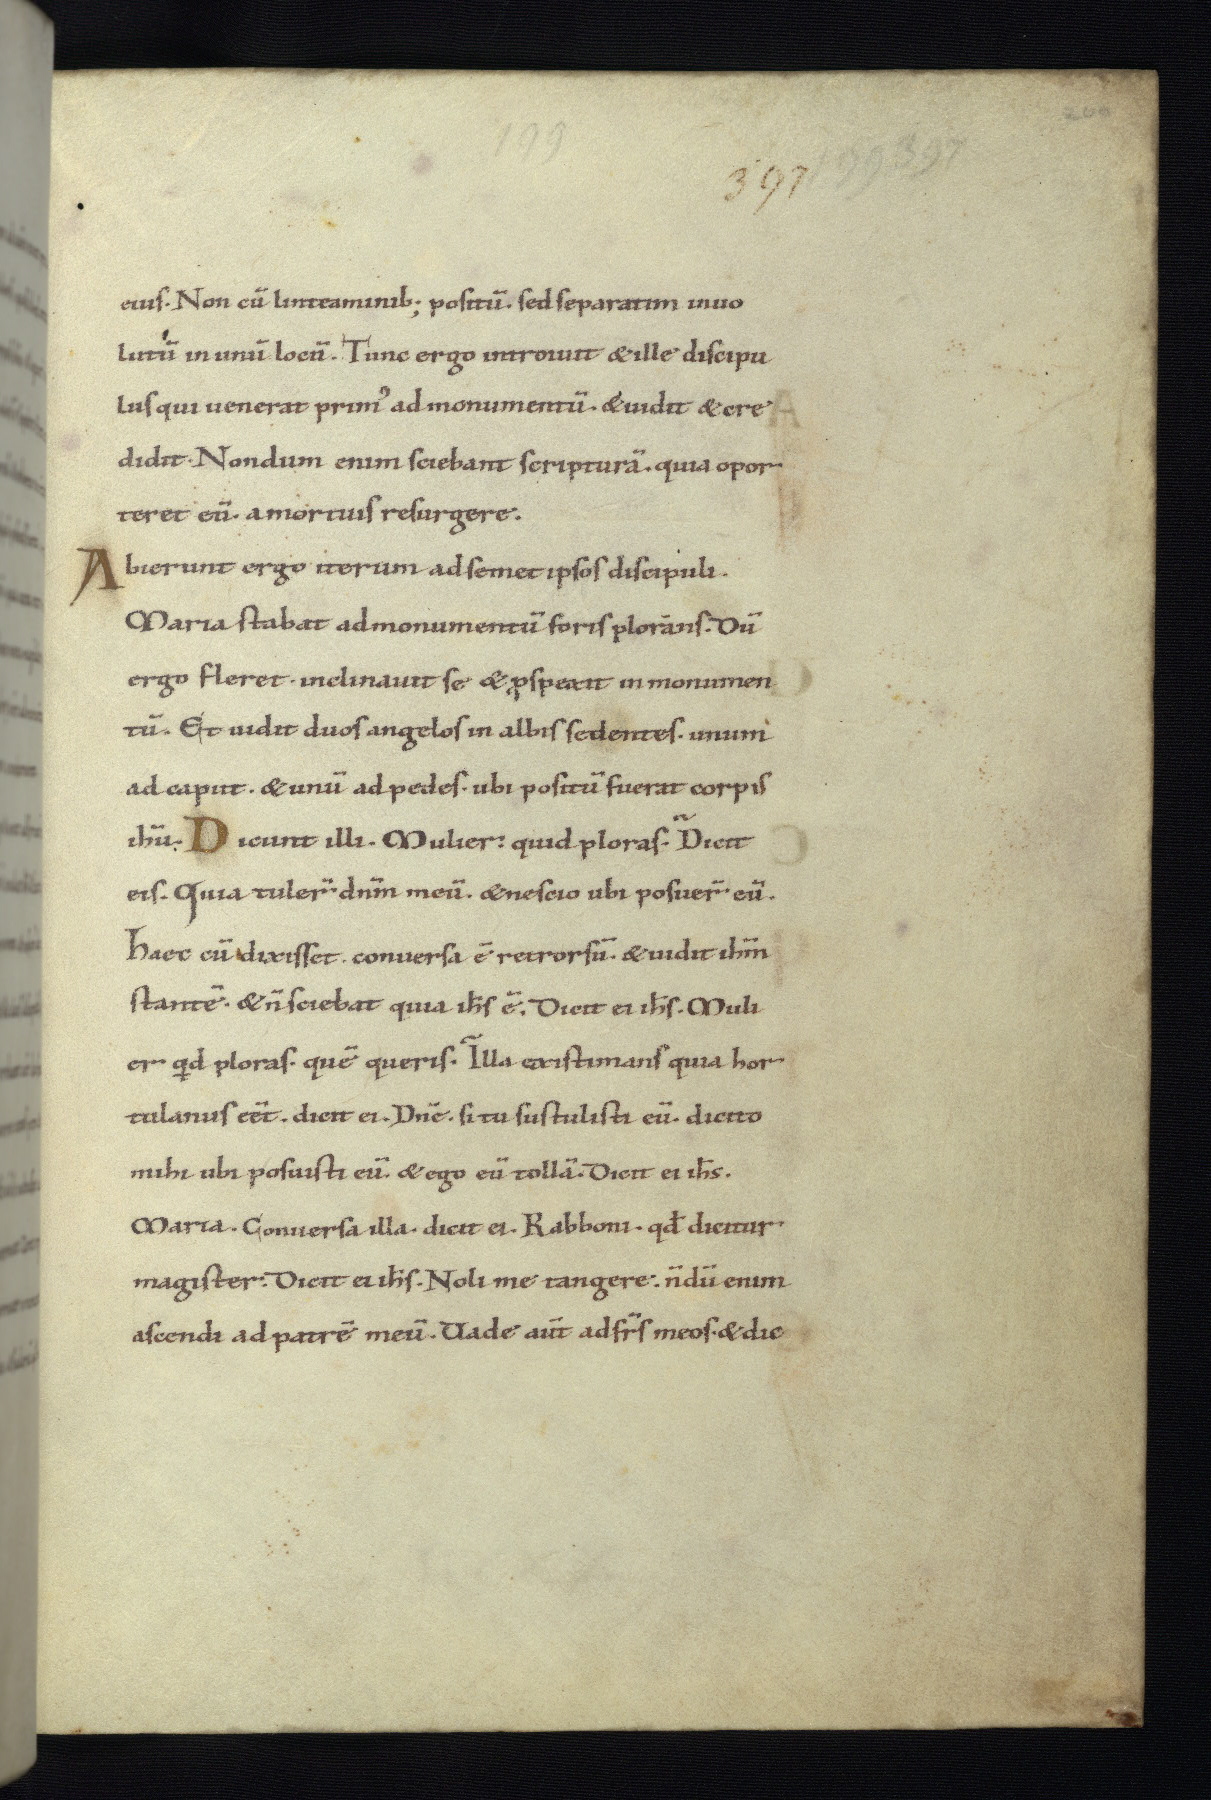 200
199
397 199 397
eius. Non cū linteaminib; positū. sed separatim inuo
lutū in unū locū. Tunc ergo introiuit & ille discipu
lus qui uenerat prim᾽ ad monumentū. & uidit & cre
didit. Nondum enim sciebant scripturā. quia opor
teret eū. a mortuis resurgere.
Abierunt ergo iterum ad semet ipsos discipuli.
Maria stabat ad monumentū foris plorans. Dū
ergo fleret. inclinauit se & ꝓspexit in monumen
tū. Et uidit duos angelos in albis sedentes. unum
ad caput. & unū ad pedes. ubi positū fuerat corpis
ihū. Dicunt illi. Mulier: quid ploras. Dicit
eis. Quia tuler̄ dnm̄ meū. & nescio ubi posuer̄ eū.
Haec cū dixisset. conuersa ē retrorsū. & uidit ihm̄
stantē. & n̄ sciebat quia ihs̄ ē. Dicit ei ihs̄. Muli
er qd ploras. quē queris. Illa existimans quia hor
tulanus eēt. dicit ei. Dnē. si tu sustulisti eū. dicito
mihi ubi posuisti eū. & ego eū tollā. Dicit ei ihs̄.
Maria. Conuersa illa. dicit ei. Rabboni. qd̄ dicitur
magister. Dicit ei ihs̄. Noli me tangere. n̄dū enim
ascendi ad patrē meū. Uade aūt ad fr̄s meos. & dic